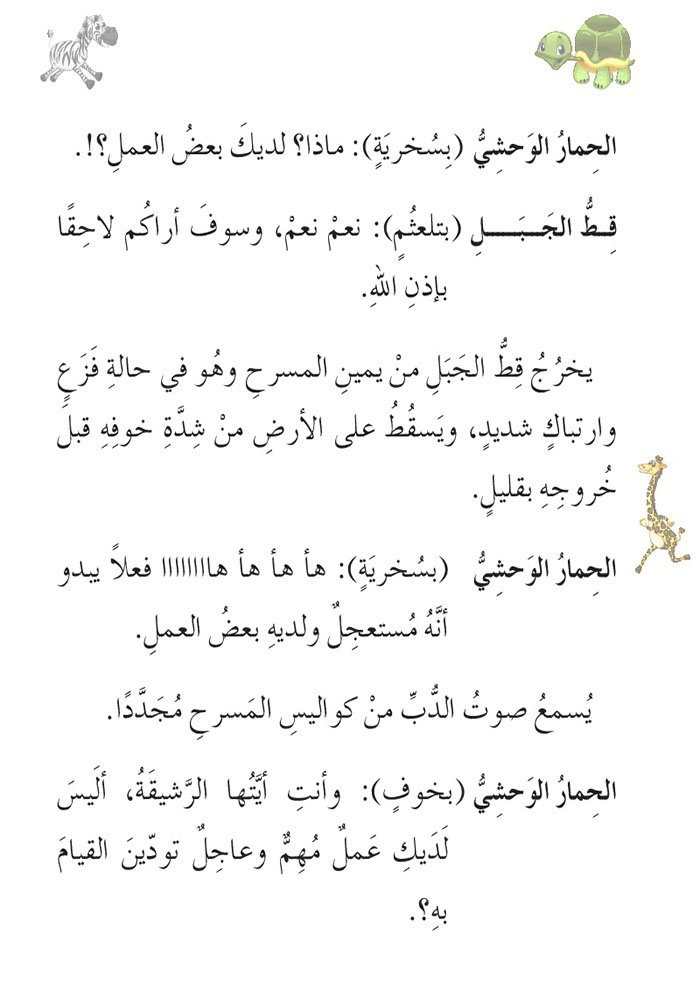 الحِمارُ الوَحشِيُّ (بِسُخريَةٍ): ماذا؟ لديكَ بعضُ العملِ؟!.
قِـطُّ الجَـــبَـــــلِ (بتلعثُمٍ): نعمْ نعمْ، وسوفَ أراكُم لاحِقًا
بإذنِ اللهِ.
يخرُجُ قِطُّ الجَبَلِ منْ يمينِ المسرحِ وهُو في حالةِ فَزَعٍ
وارتباكٍ شديدٍ، ويَسقُطُ على الأرضِ منْ شِدَّةِ خوفِهِ قبلَ
خُروجِهِ بقليلٍ.
الحِمارُ الوَحشِيُّ (بسُخريَةٍ): هأ هأ هأ هااااااا فعلاً يبدو
أنَّهُ مُستعجِلٌ ولديهِ بعضُ العملِ.
يُسمعُ صوتُ الدُّبِّ منْ كواليسِ المَسرحِ مُجَدَّدًا.
الحِمارُ الوَحشِيُّ (بخوفٍ): وأنتِ أيَّتُها الرَّشيقَةُ، ألَيسَ
لَدَيكِ عَملٌ مُهِمٌّ وعاجِلٌ تودّينَ القيامَ
بهِ؟.